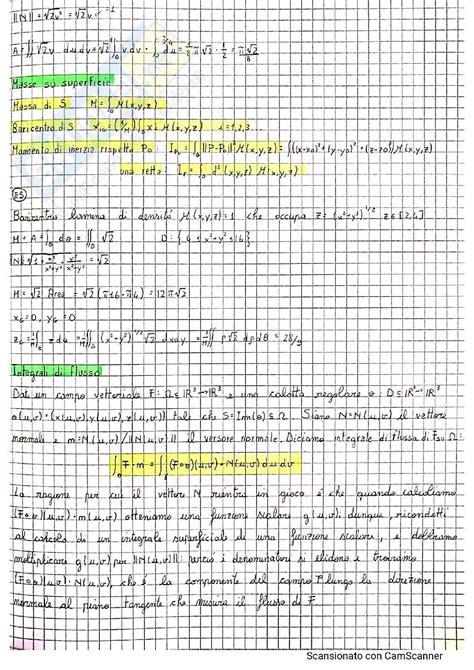 ||N|| = √2v² = √2 v
A = ∬ √2v du dv = √2 ∫ v dv · ∫ du = 1/8 π √2 · 1/2 = π√2/8
Masse su superficie
Massa di S M = ∫ μ(x,y,z)
Baricentro di S x_iG = (1/M) ∫ xi μ(x,y,z) i=1,2,3...
Momento di inerzia rispetto P₀: I_P₀ = ∫ ||P-P₀||² μ(x,y,z) = ∫((x-x₀)²+(y-y₀)²+(z-z₀)²) μ(x,y,z)
una retta: I_r = ∫ d²(x,y,z) μ(x,y,z)
ES
Baricentro lamina di densità μ(x,y,z)=1 che occupa z=(x²+y²)^1/2 z∈[2,4]
M = A = ∫ dσ = ∬_D √2 D: {4 ≤ x²+y² ≤ 16}
N = √1 + x²/x²+y² + y²/x²+y² = √2
M = √2 Area = √2 (π16 - π4) = 12π√2
x_G = 0, y_G = 0
z_G = 1/M ∫ z dσ = 1/M ∬ (x²+y²)^1/2 √2 dx dy = 1/M ∬ ρ √2 ρ dρ dθ = 28/9
Integrali di flusso
Dati un campo vettoriale F: Ω⊆ℝ³→ℝ³ e una calotta regolare σ: D⊆ℝ²→ℝ³
σ(u,v) = (x(u,v), y(u,v), z(u,v)) tale che S=Im(σ)⊆Ω. Siano N=N(u,v) il vettore
normale e m=N(u,v)/||N(u,v)|| il versore normale. Diciamo integrale di flusso di F su Ω:
∫_σ F·m = ∫ (F∘σ)(u,v)·N(u,v) du dv
La ragione per cui il vettore N rientra in gioco è che quando calcoliamo
(F∘σ)(u,v)·m(u,v) otteniamo una funzione scalare g(u,v); dunque, ricondotti
al calcolo di un integrale superficiale di una funzione scalare, e dobbiamo
moltiplicare g(u,v) per ||N(u,v)||: perciò i denominatori si elidono e troviamo
(F∘σ)(u,v)·N(u,v), che è la componente del campo F lungo la direzione
normale al piano tangente che misura il flusso di F.
Scansionato con CamScanner